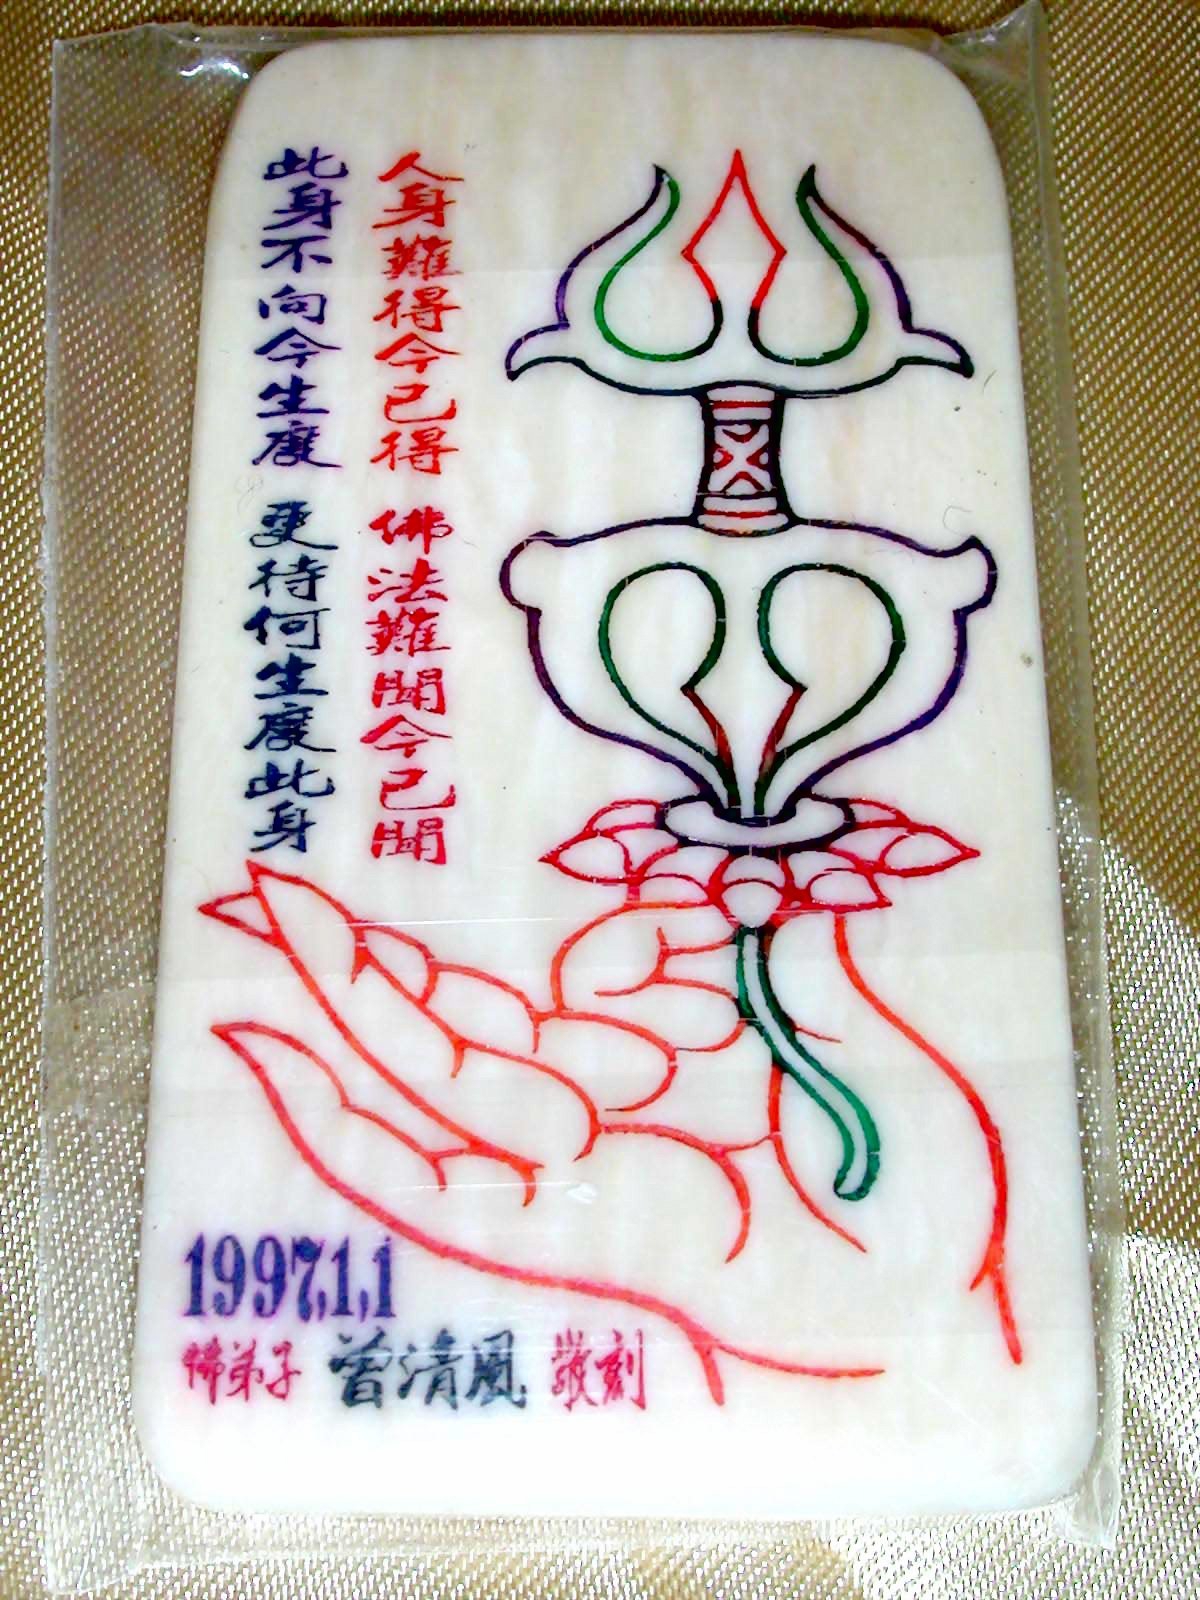 人身難得今已得 佛法難聞今已聞
此身不向今生度 更待何生度此身
1997,1,1
佛弟子 曾清風 敬刻